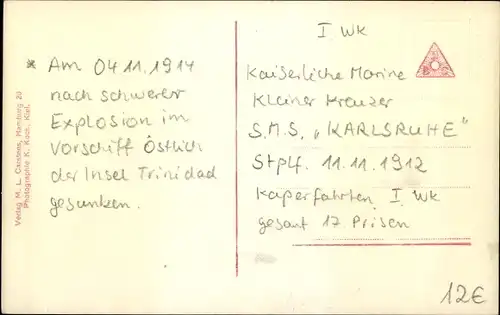 Verlag M. L. Carstens, Hamburg 29
Photographie K. Koch, Kiel.
* Am 04.11.1914
nach schwerer
Explosion im
Vorschiff Östlich
der Insel Trinidad
gesunken.
I WK
Kaiserliche Marine
Kleiner Kreuzer
S.M.S. „KARLSRUHE"
Stplf. 11.11.1912
Kaperfahrten I. WK
gesamt 17 Prisen
12€